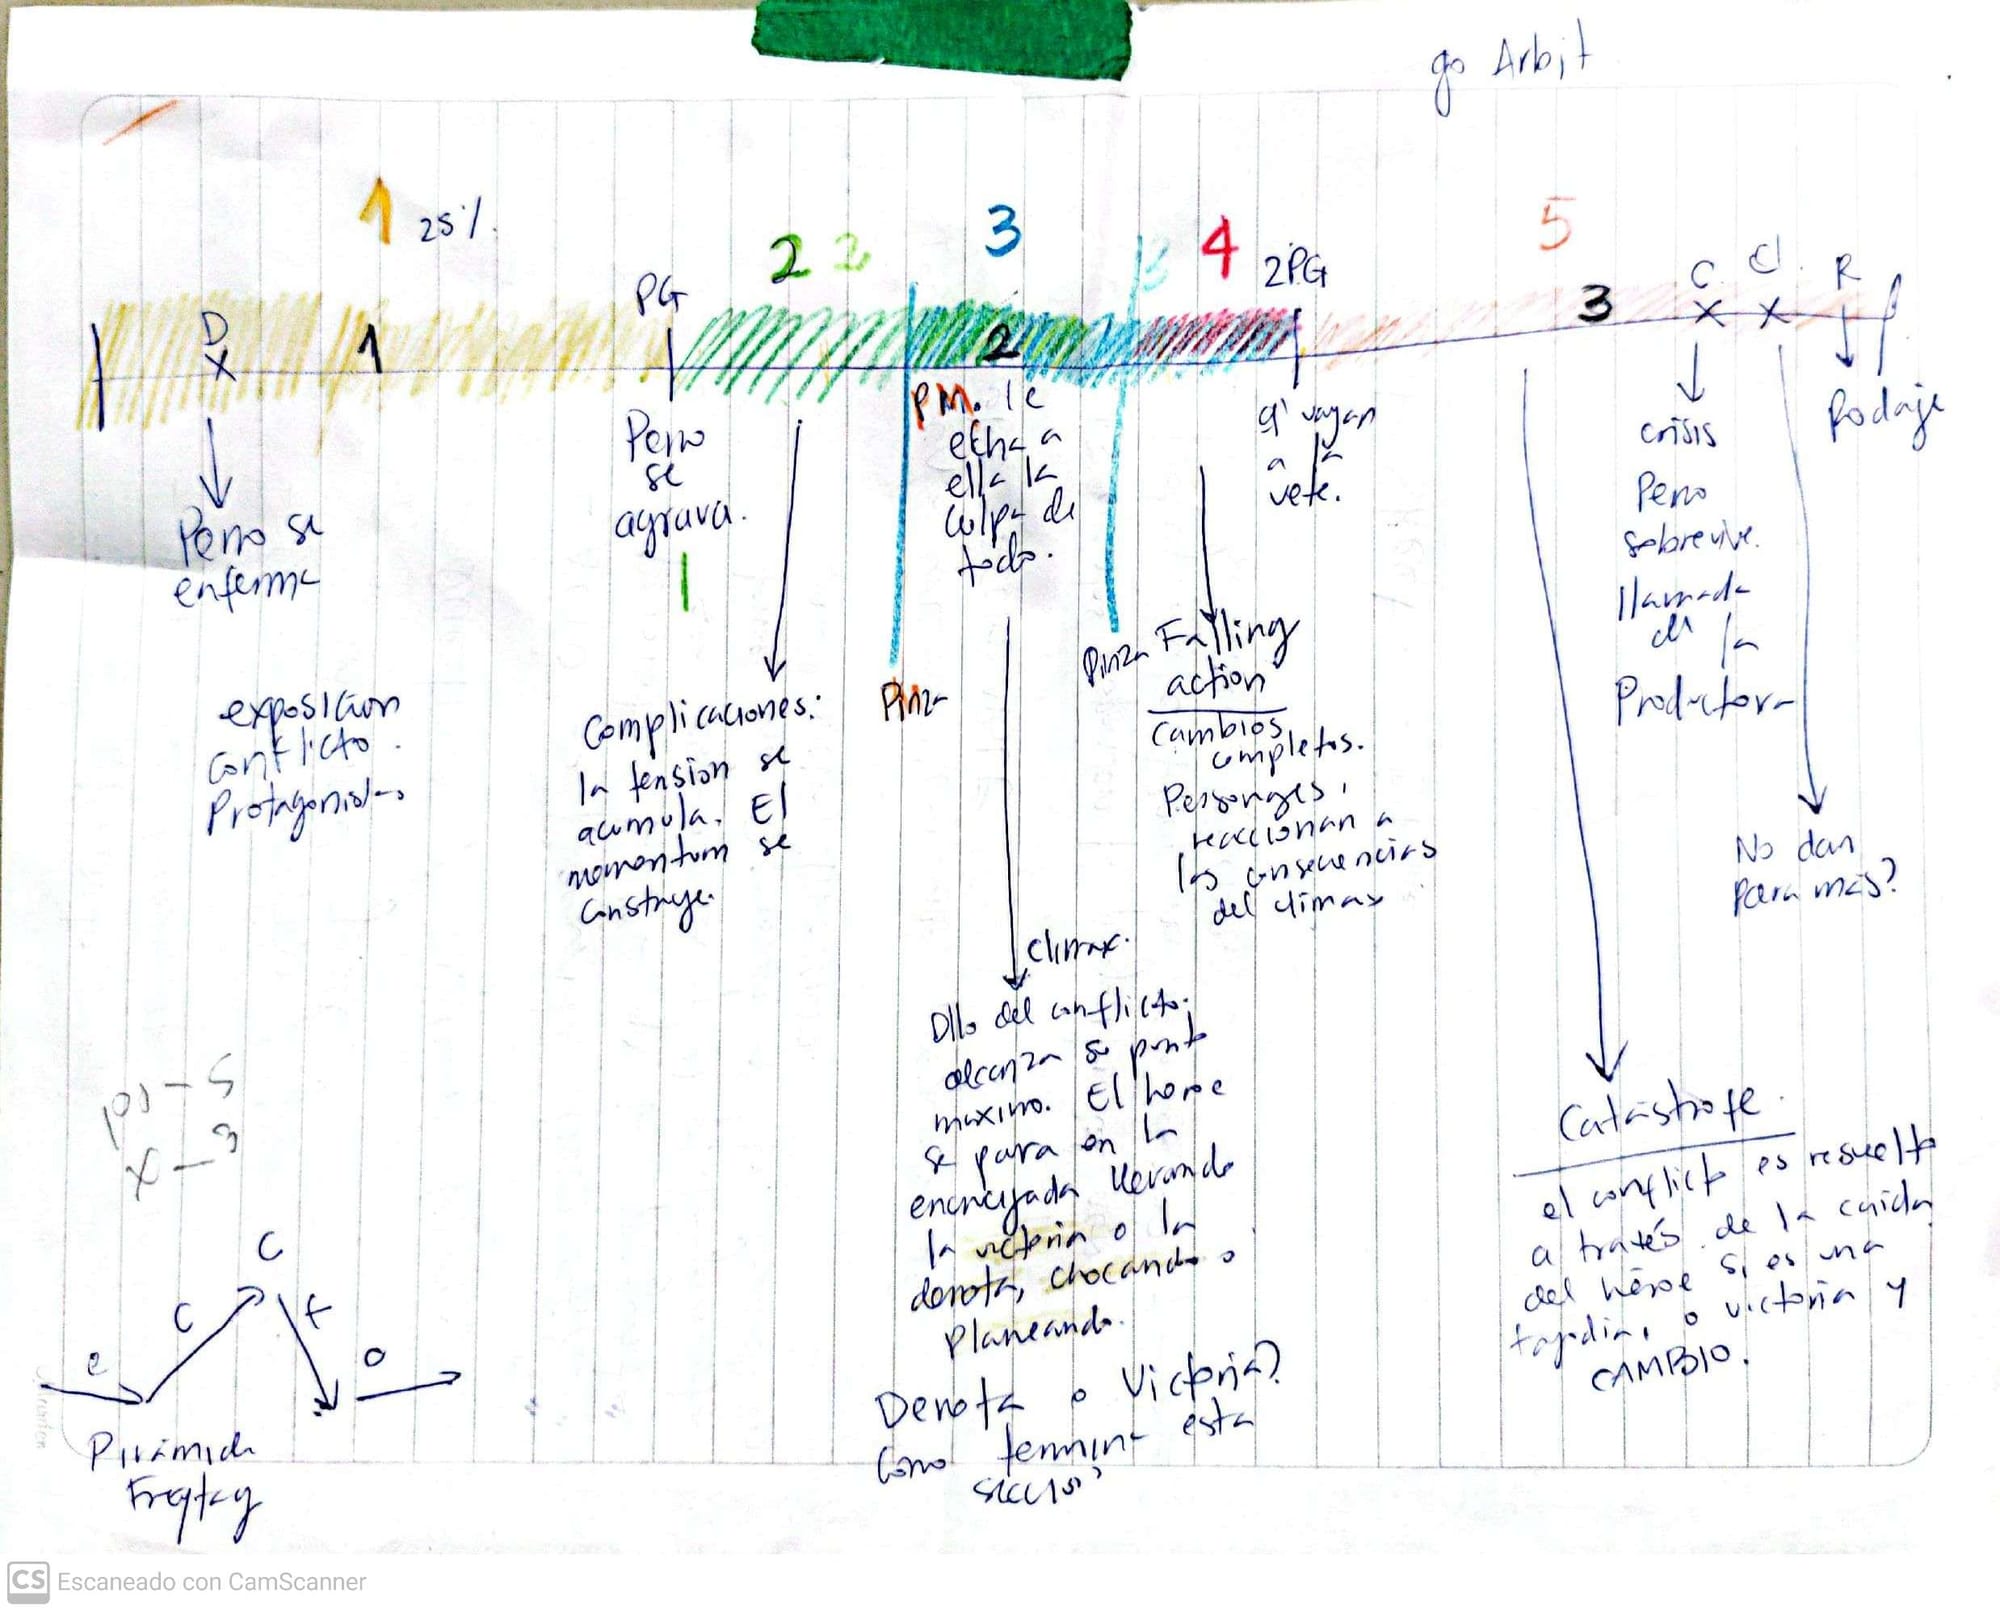 go Arbit
1 25%.
2 2
3
3
4
5
PG
2PG
D
X
1
2
3
C
X
Cl.
X
R
Perro se
enferma
Perro
se
agrava.
PM. le
echa a
ella la
culpa de
todo.
q' vayan
a la
vete.
crisis
Perro
sobrevive.
llamada
de la
Productora
Rodaje
exposición
conflicto.
Protagonistas
Complicaciones:
la tension se
acumula. El
momentum se
construye.
Pinza
Pinza
Falling
action
cambios
completos.
Personajes,
reaccionan a
las consecuencias
del climax
No dan
para más?
Climax.
Dllo del conflicto:
alcanza su punto
maximo. El heroe
se para en la
encrucijada llevando
la victoria o la
derrota, chocando o
planeando.
Derrota o Victoria?
Como termina esta
sección?
Catástrofe.
el conflicto es resuelto
a través de la caida
del héroe si es una
tragedia, o victoria y
CAMBIO.
C
C
f
e
o
Pirámide
Freytag
CS Escaneado con CamScanner